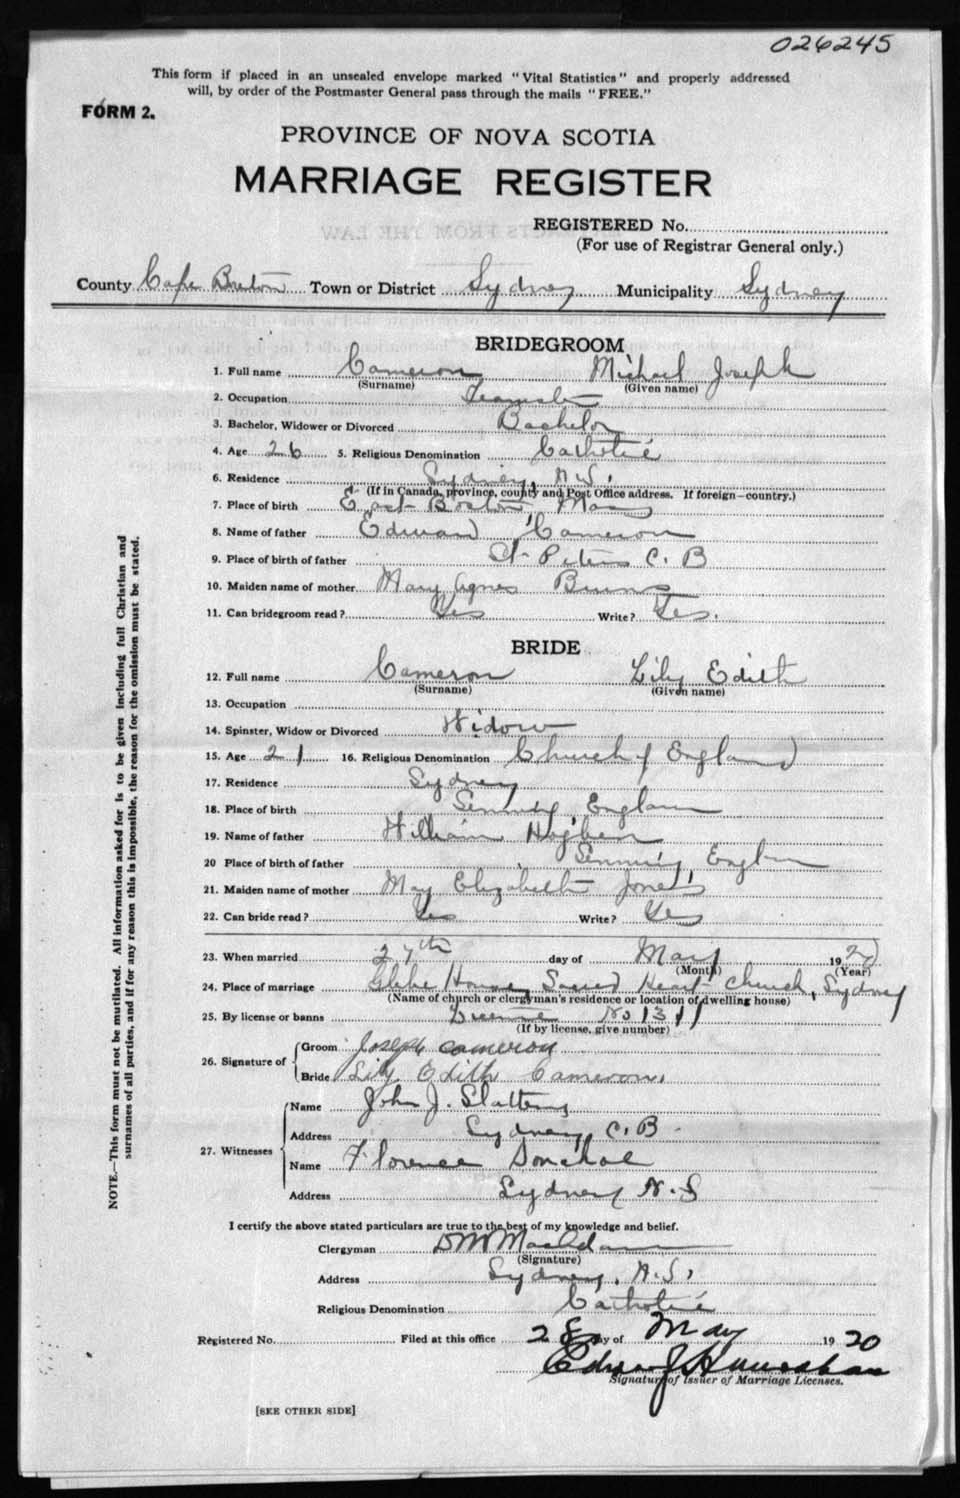 026245
This form if placed in an unsealed envelope marked "Vital Statistics" and properly addressed
will, by order of the Postmaster General pass through the mails "FREE."
FORM 2.
PROVINCE OF NOVA SCOTIA
MARRIAGE REGISTER
REGISTERED No.
(For use of Registrar General only.)
County Cape Breton Town or District Sydney Municipality Sydney
BRIDEGROOM
1. Full name Cameron Michael Joseph
(Surname) (Given name)
2. Occupation Teamster
3. Bachelor, Widower or Divorced Bachelor
4. Age 26 5. Religious Denomination Catholic
6. Residence Sydney, N.S.
(If in Canada, province, county and Post Office address. If foreign—country.)
7. Place of birth East Boston, Mass
8. Name of father Edward Cameron
9. Place of birth of father St Peters C. B
10. Maiden name of mother Mary Agnes Burns
11. Can bridegroom read? Yes Write? Yes.
BRIDE
12. Full name Cameron Lily Edith
(Surname) (Given name)
13. Occupation
14. Spinster, Widow or Divorced Widow
15. Age 21 16. Religious Denomination Church of England
17. Residence Sydney
18. Place of birth England
19. Name of father William
20 Place of birth of father
21. Maiden name of mother May Elizabeth Jones
22. Can bride read? Yes Write? Yes
23. When married 27th day of May 1920
(Month) (Year)
24. Place of marriage Glebe House, Sacred Heart Church, Sydney
(Name of church or clergyman's residence or location of dwelling house)
25. By license or banns License No 1311
(If by license, give number)
26. Signature of Groom Joseph Cameron
Bride Lily Edith Cameron.
27. Witnesses Name John J. Slattery
Address Sydney, C. B.
Name Florence Donahoe
Address Sydney N. S
I certify the above stated particulars are true to the best of my knowledge and belief.
Clergyman
(Signature)
Address Sydney, N.S.
Religious Denomination Catholic
Registered No. Filed at this office 28 day of May 1920
Signature of Issuer of Marriage Licenses.
[SEE OTHER SIDE]
NOTE.—This form must not be mutilated. All information asked for is to be given including full Christian and
surnames of all parties, and if for any reason this is impossible, the reason for the omission must be stated.